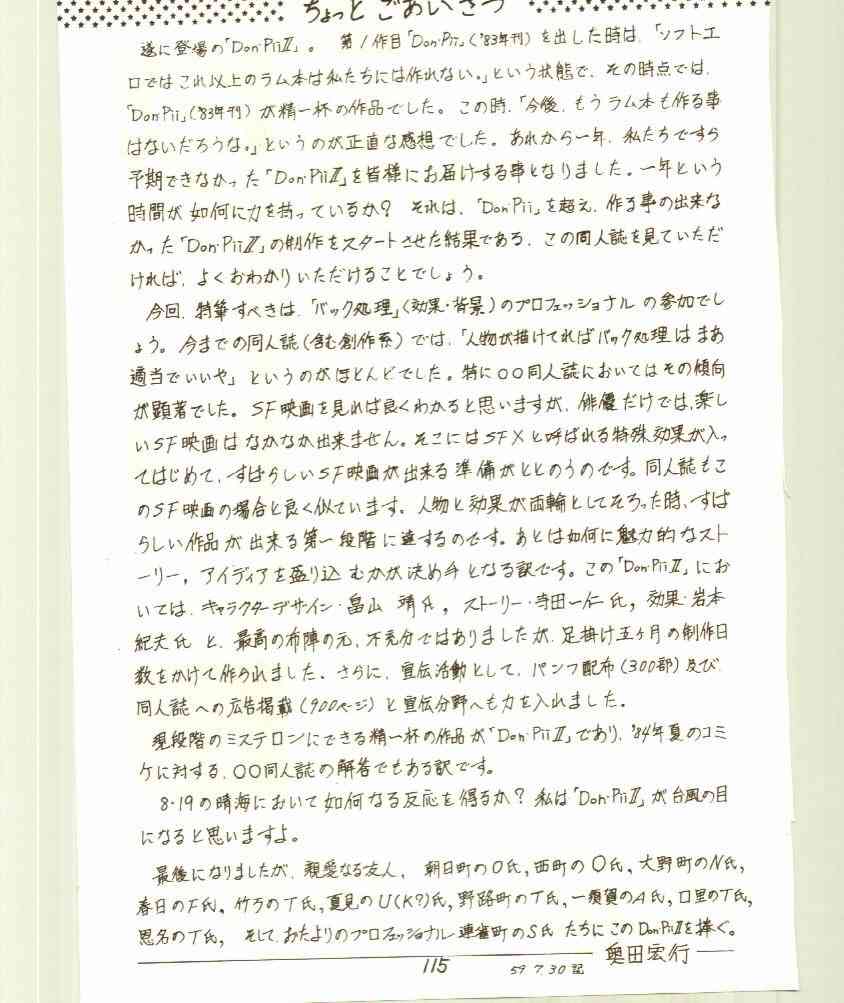 ちょっとごあいさつ
遂に登場の「Don・PiiⅡ」。 第1作目「Don・Pii」('83年刊)を出した時は、「ソフトエ
ロではこれ以上のラム本は私たちには作れない。」という状態で、その時点では、
「Don・Pii」('83年刊)が精一杯の作品でした。この時、「今後、もうラム本も作る事
はないだろうな。」というのが正直な感想でした。あれから一年、私たちですら
予期できなかった「Don・PiiⅡ」を皆様にお届けする事となりました。一年という
時間が如何に力を持っているか? それは、「Don・Pii」を超え、作る事の出来な
かった「Don・PiiⅡ」の制作をスタートさせた結果である、この同人誌を見ていただ
ければ、よくおわかりいただけることでしょう。
今回、特筆すべきは、「バック処理」(効果・背景)のプロフェッショナルの参加でし
ょう。今までの同人誌(含む創作系)では、「人物が描けてればバック処理はまあ
適当でいいや」というのがほとんどでした。特に○○同人誌においてはその傾向
が顕著でした。SF映画を見れば良くわかると思いますが、俳優だけでは、楽し
いSF映画はなかなか出来ません。そこにはSFXと呼ばれる特殊効果が入っ
てはじめて、すばらしいSF映画が出来る準備がととのうのです。同人誌もこ
のSF映画の場合と良く似ています。人物と効果が両輪としてそろった時、すば
らしい作品が出来る第一段階に達するのです。あとは如何に魅力的なスト
ーリー,アイディアを盛り込むかが決め手となる訳です。この「Don・PiiⅡ」にお
いては、キャラクターデザイン・畠山 靖氏,ストーリー・寺田一仁氏,効果・岩本
紀夫氏 と、最高の布陣の元、不充分ではありましたが、足掛け五ヶ月の制作日
数をかけて作られました。さらに、宣伝活動として、パンフ配布(300部)及び、
同人誌への広告掲載(900ページ)と宣伝分野へも力を入れました。
現段階のミステロンにできる精一杯の作品が「Don・PiiⅡ」であり、'84年夏のコミ
ケに対する、○○同人誌の解答でもある訳です。
8・19の晴海において如何なる反応を得るか? 私は「Don・PiiⅡ」が台風の目
になると思いますよ。
最後になりましたが、親愛なる友人, 朝日町のO氏,西町のO氏,大野町のN氏,
春日のF氏,竹ラのT氏,夏見のU(K?)氏,野路町のT氏,一須賀のA氏,口里のT氏,
恩名のT氏, そして、おたよりのプロフェッショナル連雀町のS氏 たちにこのDon・PiiⅡを捧ぐ。
115 59 7.30記 奥田宏行